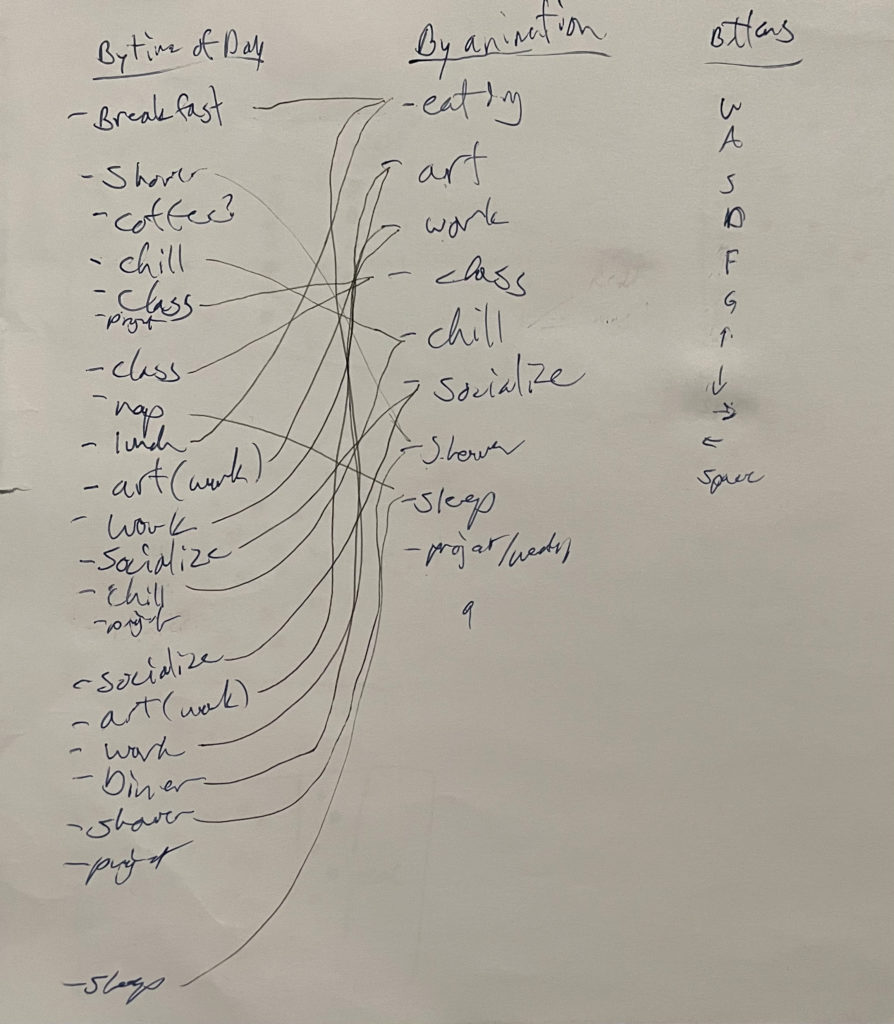 By time of Day
- Breakfast
- Shower
- coffee?
- chill
- class
- projet
- class
- nap
- lunch
- art (work)
- work
- Socialize
- chill
- projet
- Socialize
- art (work)
- work
- Diner
- shower
- projet
- Sleep
By animation
- eating
- art
- work
- class
- chill
- Socialize
- Shower
- sleep
- projet/
9
Bttons
W
A
S
D
F
G
↑
↓
→
←
Space